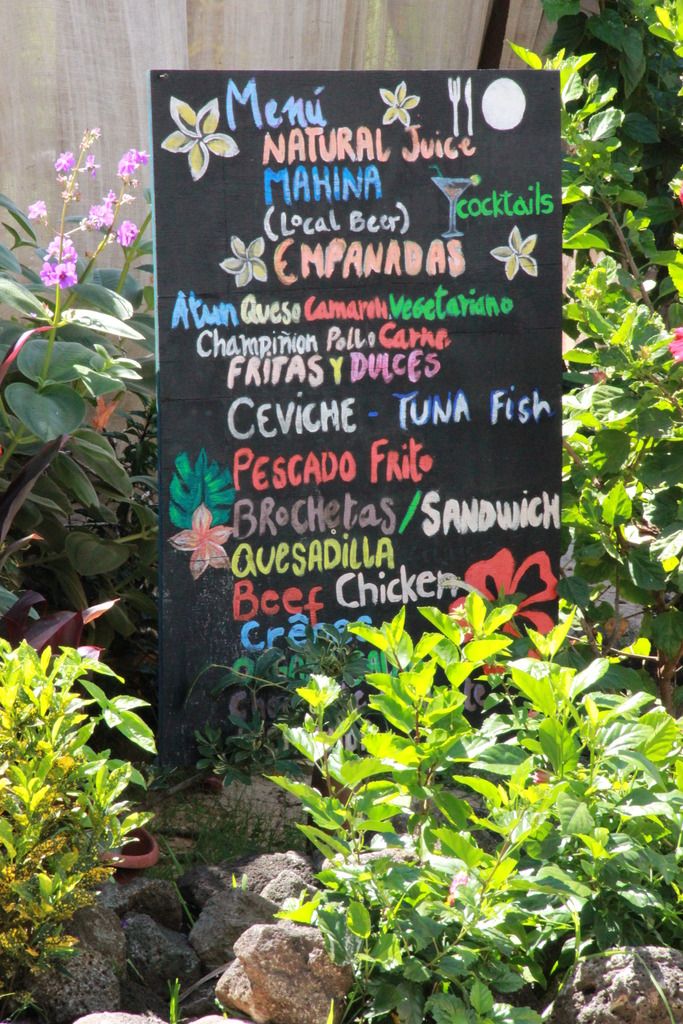 Menú
NATURAL Juice
MAHINA
(Local Beer)
cocktails
EMPANADAS
Atun Queso Camaron Vegetariano
Champiñion Pollo Carne
FRITAS Y DULCES
CEVICHE - TUNA Fish
PESCADO Frito
BROCHETAS / SANDWICH
QUESADILLA
Beef Chicken
Crêpes